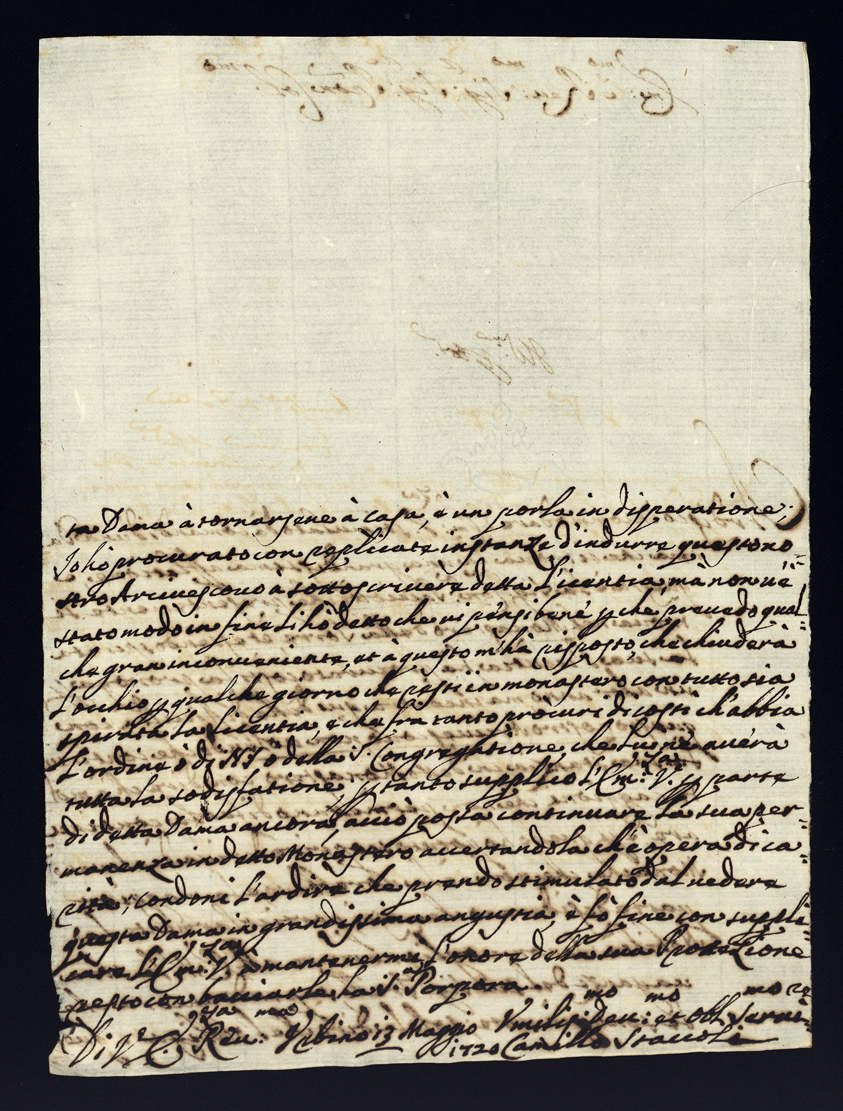 ta Dama à tornarsene à casa, è un porla in disperatione;
Io hò procurato con replicate instanze d'indurre questo no=
stro Arcivescovo à sottoscrivere detta Licentia, mà non v'è
stato modo in fine li hò detto che vi pensi bene p che prevedo qual=
che gran inconveniente, et à questo m'hà risposto, che chiuderà
l'occhio p qualche giorno che resti in monastero con tutto sia
spirata la Licentia, e che fra tanto procuri di costì ch'abbia
l'ordine ò di NS ò della S. Congregatione che lui n'averà
tutta la sodisfatione, p tanto supplico l'Em.za V. p parte
di detta Dama ancora, acciò possa continuare la sua per=
manenza in detto Monastero accertandola ch'è opera di ca=
rità, condoni l'ardire che prendo stimulato dal vedere
questa Dama in grandissima angustia, e fò fine con suppli=
care l'Em.za V. à mantenermi l'onore della sua Protezione
resto con bacciarle la S.a Porpora
Di V.E. Rev.ma Urbino 13 Maggio Umiliss.mo Dev.mo et Obb.mo Servi
1720 Camillo Staccoli